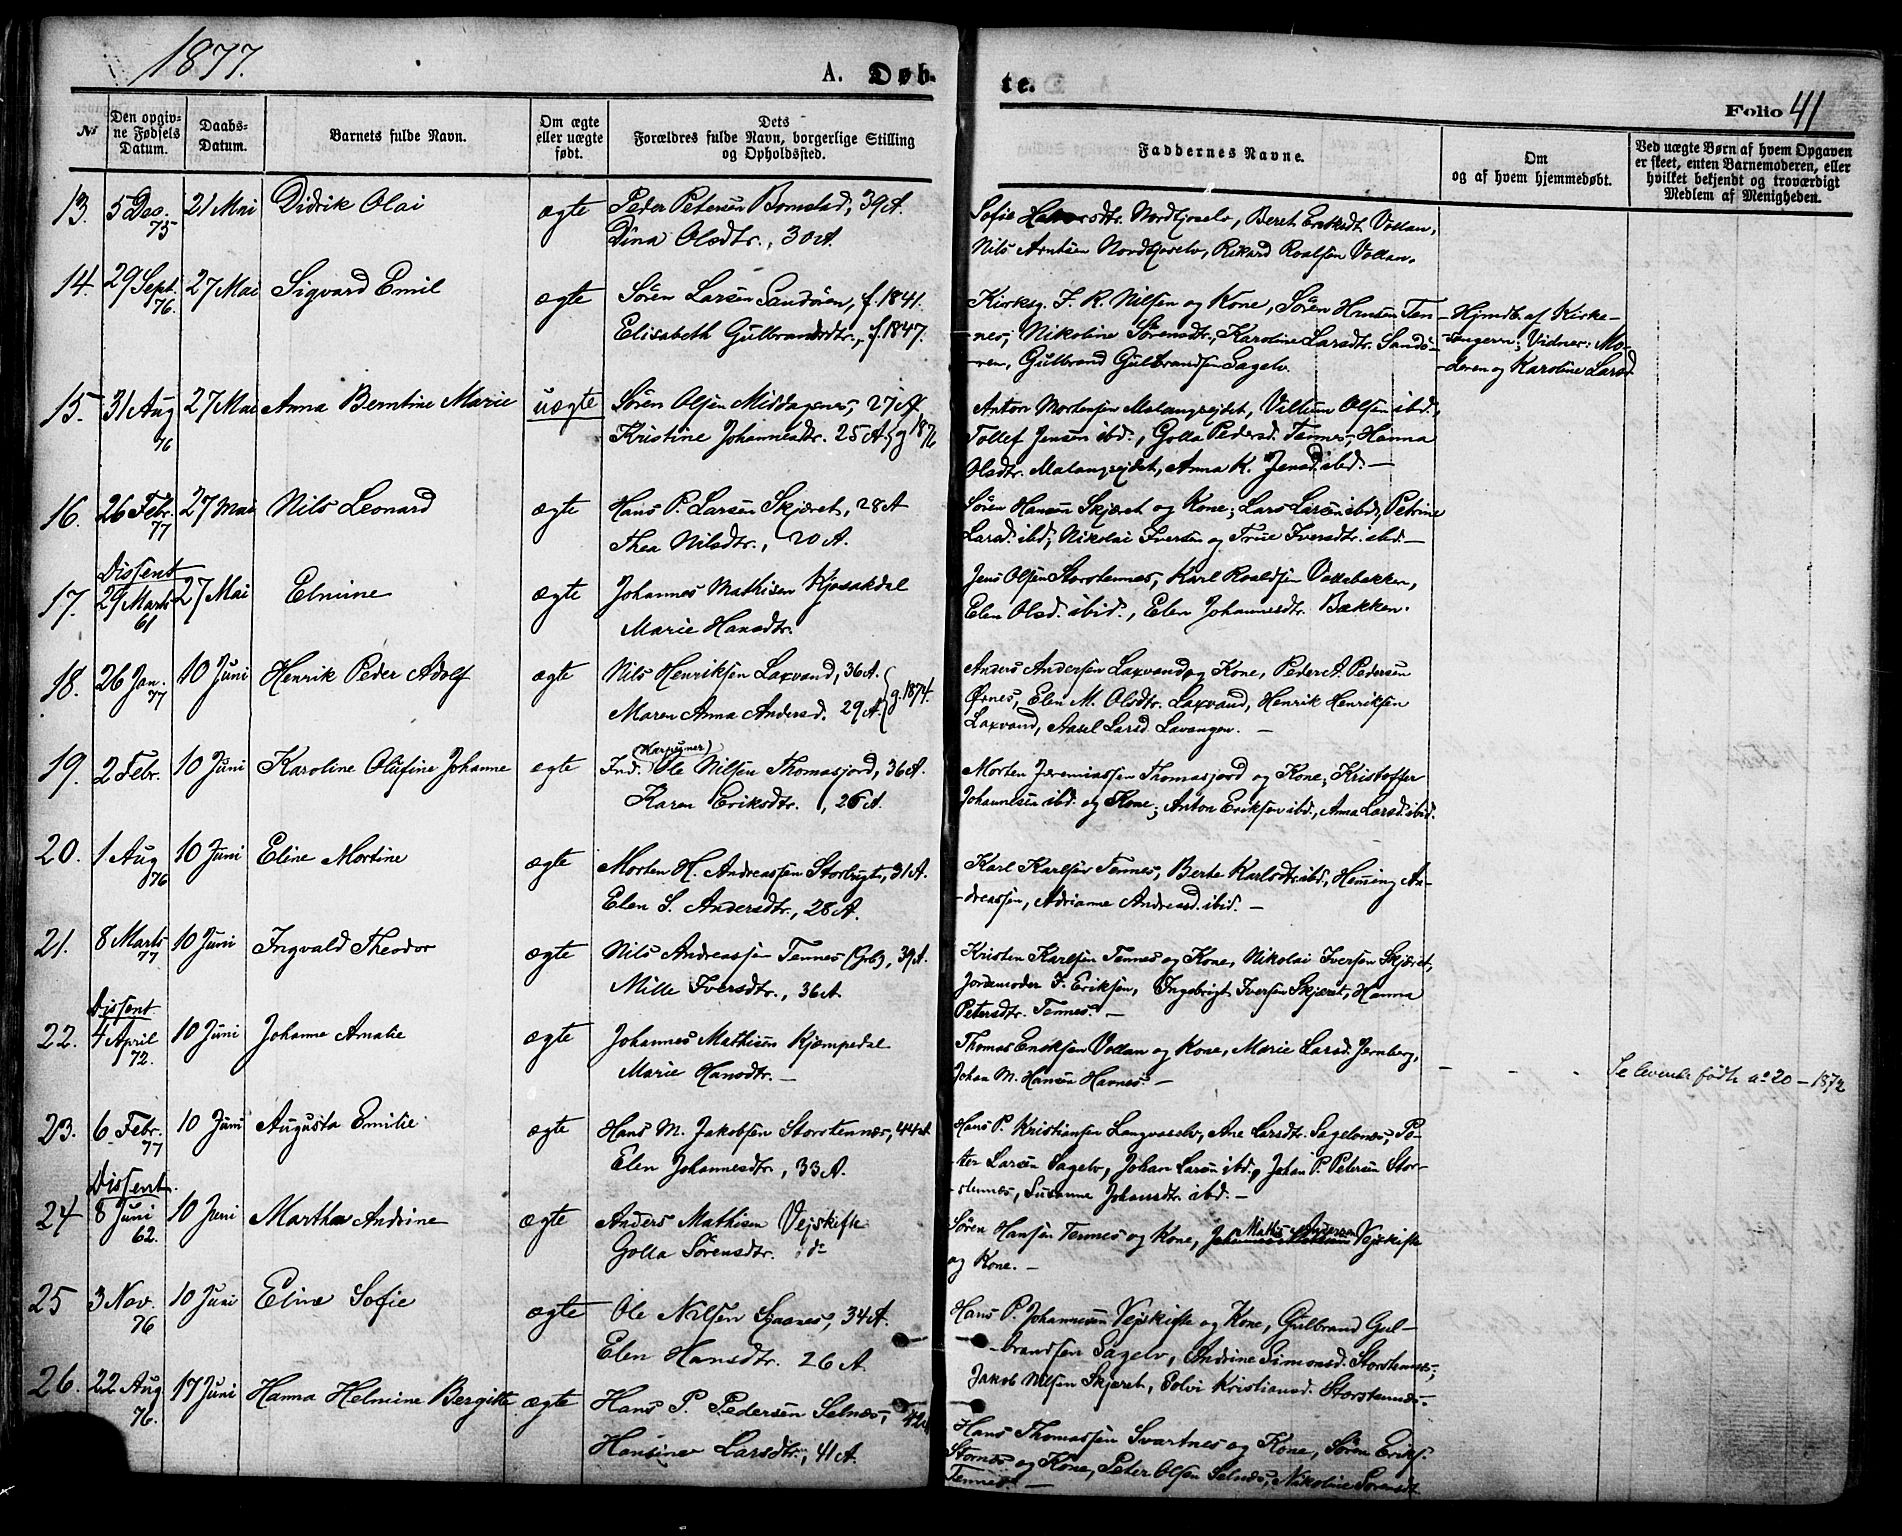 1877.
A. Døb-
te.
Folio 41
№
Den opgiv-
ne Fødsels
Datum.
Daabs-
Datum.
Barnets fulde Navn.
Om ægte
eller uægte
født.
Dets
Forældres fulde Navn, borgerlige Stilling
og Opholdssted.
Faddernes Navne.
Om
og af hvem hjemmedøbt.
Ved uægte Børn af hvem Opgaven
er skeet, enten Barnemoderen, eller
hvilket bekjendt og troværdigt
Medlem af Menigheden.
13. 5 Des. 75 21 Mai Didrik Olai ægte Peder Petersen Bomstad, 39 A.
Dina Olsdtr., 30 A.
Sofie Nordkjoselv, Beret Eriksdt. Vollan,
Nils Arntsen Nordkjoselv, Rikard Roalsen Vollan.
14. 29 Sept. 76. 27 Mai Sigvard Emil ægte Sören Larsen Sandören, f. 1841.
Elisabeth Gulbrandsdtr., f. 1847.
Kirksg. F. R. Nilsen og Kone, Sören Hansen Ten-
-nes, Nikoline Sörensdtr., Karoline Larsdtr. Sandö-
-ren, Gulbrand Gulbrandsen Sagelv.
-Hjmdb. af Kirke-
-sangeren; Vidner: Mo-
-deren og Karoline Larsd.
15. 31 Aug 76 27 Mai Anna Berntine Marie uægte Sören Olsen Middagsnes, 27 A.
Kristine Johannesdtr. 25 A. g 1876
Anton Mortensen Malangseidet, Villum Olsen ibd.,
Tollef Jensen ibd., Golla Pedersd. Tennes, Hanna
Olsdtr. Malangseidet, Anna K. Jensd. ibd. —
16. 26 Febr. 77 27 Mai Nils Leonard ægte Hans P. Larsen Skjæret, 28 A
Thea Nilsdtr., 20 A.
Sören Hansen Skjæret og Kone; Lars Larsen ibd., Petrine
Larsd. ibd., Nikolai Iversen og Trine Iversdtr. ibd. —
Dissent
17. 29 Marts 61 27 Mai Elmine ægte Johannes Mathisen
Marie Hansdtr.
Jens Olsen Storstennes, Karl Roaldsen Vollabakken,
Elen Olsd. ibid., Elen Johannesdtr. Bækken.
18. 26 Jan. 77 10 Juni Henrik Peder Adolf ægte Nils Henriksen Laxvand, 36 A.
Maren Anna Andersd. 29 A. g. 1874.
Anders Andersen Laxvand og Kone, Peder A. Pedersen
Ørnes, Elen M. Olsdtr. Laxvand, Henrik Henriksen
Laxvand, Aasel Larsd. Lavangen. —
19. 2 Febr. 10 Juni Karoline Olufine Johanne ægte Ind. Ole Nilsen Thomasjord, 36 A.
Karen Eriksdtr., 26 A.
Morten Jeremiassen Thomasjord og Kone; Kristoffer
Johannesen ibd. og Kone; Anton Eriksen ibd., Anna Larsd. ibid.
20. 1 Aug 76 10 Juni Eline Mortine ægte Morten H. Andreassen Storbugt, 31 A.
Elen S. Andersdtr., 28 A.
Karl Karlsen Tennes, Berte Karlsdtr. ibd., Heming An-
-dreassen, Adrianne Andreasd. ibid. —
21. 8 Marts 77 10 Juni Ingvald Theodor ægte Nils Andreassen Tennes (Grb), 39 A.
Mille Iversdtr., 36 A
Kristen Karlsen Tennes og Kone, Nikolai Iversen Skjæret,
Jordemoder F. Eriksen, Ingebrigt Iversen Skjæret, Hanna
Petersdtr. Tennes. —
Dissent
22. 4 April 72. 10 Juni Johanne Amalie ægte Johannes Mathisen Kjempedal
Marie Hansdtr. —
Thomas Eriksen Vollan og Kone, Marie Larsd. Jernberg,
Johan M. Hansen Havnes. —
Se levende födte no 20 – 1872
23. 6 Febr. 77 10 Juni Augusta Emilie ægte Hans M. Jakobsen Storstennes, 44 A
Elen Johannesdtr., 33 A.
Hans P. Kristiansen Langvasselv, Ane Larsdtr. Sagelvnes, Pe-
-ter Larsen Sagelv, Johan Larsen ibd., Johan P. Petersen Stor-
-stennes, Susanne Johansdtr. ibd. —
Dissent.
24 8 Juni 62. 10 Juni Martha Andrine ægte Anders Mathisen Vejskifte
Golla Sörensdtr. do
Sören Hansen Tennes og Kone, Mathis Andersen Vejskifte
og Kone. —
25 3 Nov. 76 10 Juni Eline Sofie ægte Ole Nilsen, 34 A.
Elen Hansdtr. 26 A.
Hans P. Johannesen Vejskifte og Kone, Gulbrand Gul-
-brandsen Sagelv, Andrine Simonsd. Storstennes,
Jakob Nilsen Skjæret, Solvi Kristiansd. Storstennes.
26. 22 Aug 76. 17 Juni Hanna Helmine Bergitte ægte Hans P. Pedersen Selnes, 42
Hansine Larsdtr., 41 A.
Hans Thomassen Svartnes og Kone, Sören Eriks.
Stornes og Kone, Peter Olsen Selnes, Nikoline Sörensdt.
Tennes. —